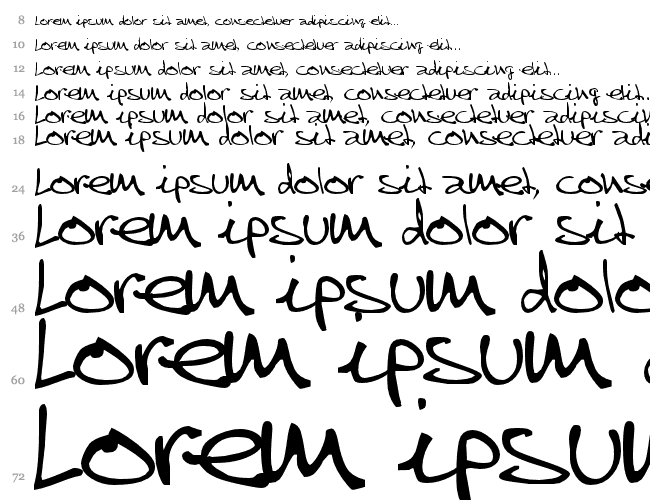 8 Lorem ipsum dolor sit amet, consectetuer adipiscing elit...
10 Lorem ipsum dolor sit amet, consectetuer adipiscing elit...
12 Lorem ipsum dolor sit amet, consectetuer adipiscing elit...
14 Lorem ipsum dolor sit amet, consectetuer adipiscing elit..
16 Lorem ipsum dolor sit amet, consectetuer adipiscin
18 Lorem ipsum dolor sit amet, consectetuer adi
24 Lorem ipsum dolor sit amet, conse
36 Lorem ipsum dolor sit
48 Lorem ipsum dolo
60 Lorem ipsum
72 Lorem ipsu